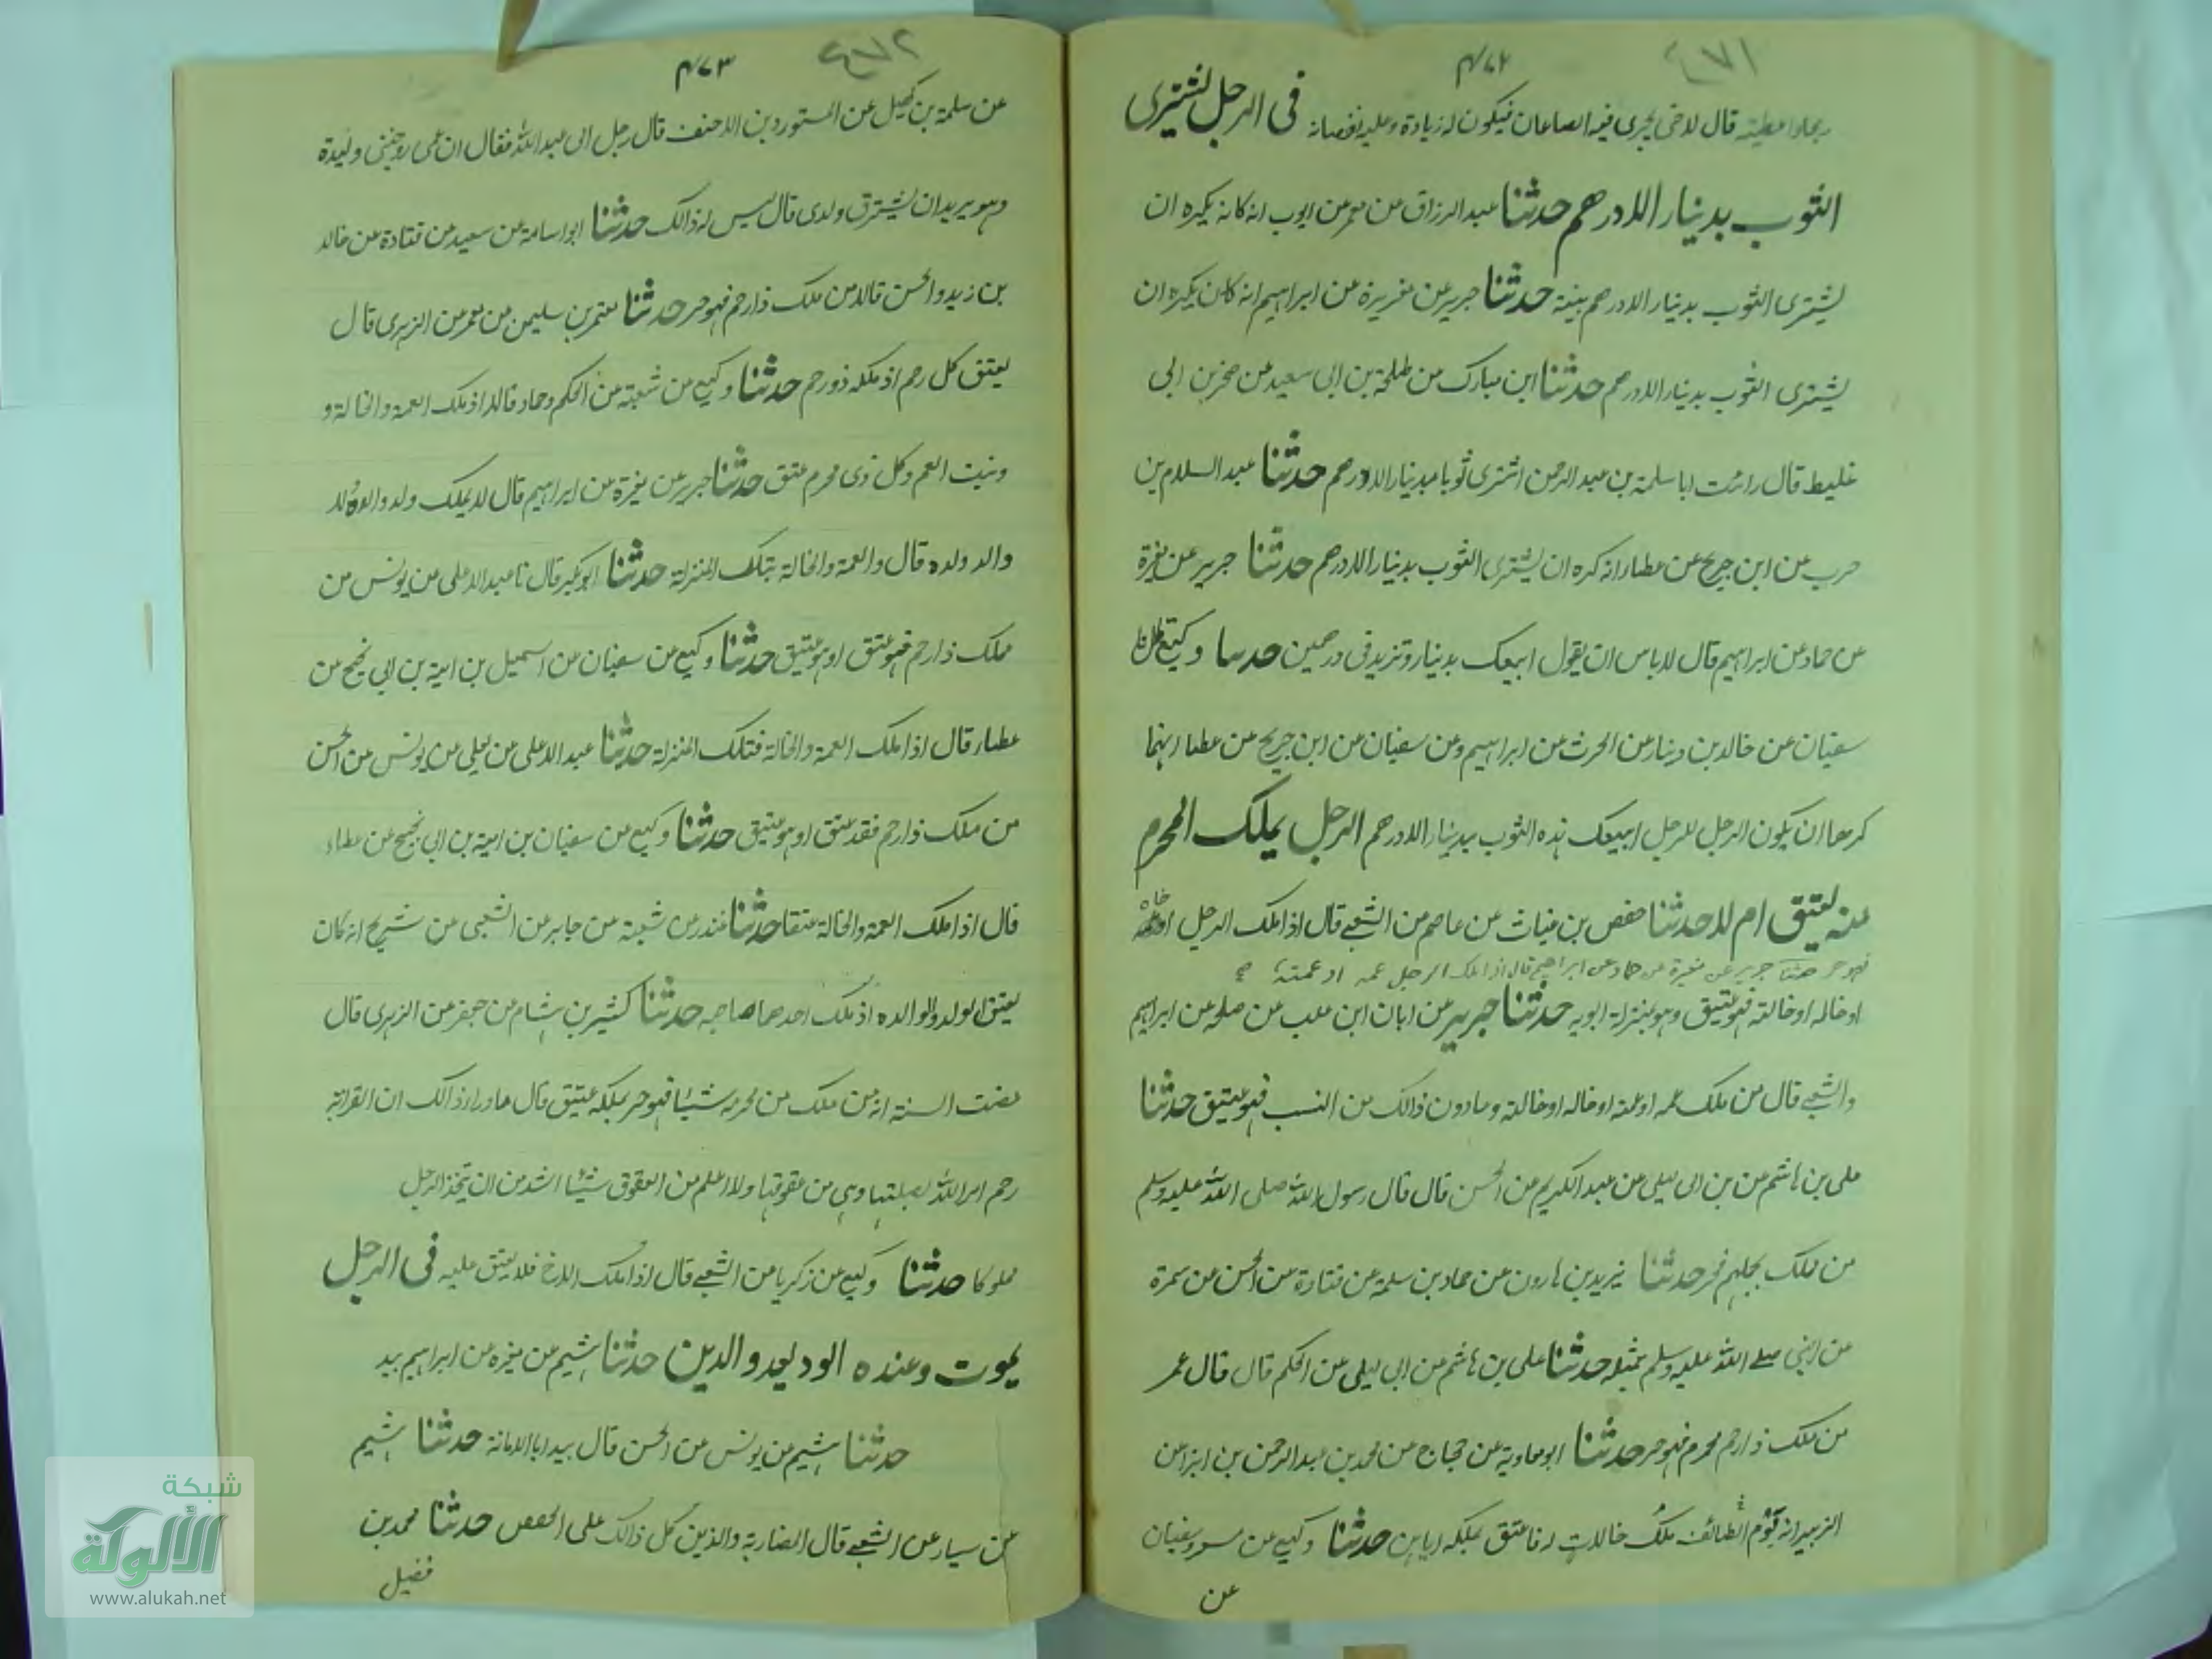 ٤٧١
٤٧٢
قال لا حتى يجرى فيه الصاعان فيكون له زيادة وعليه نقصانه فى الرجل يشترى
الثوب بدينار الا درهم حدثنا عبد الرزاق عن معمر عن ايوب انه كان يكره ان
يشترى الثوب بدينار الا درهم حدثنا جرير عن مغيرة عن ابراهيم انه كان يكره ان
يشترى الثوب بدينار الا درهم حدثنا ابن مبارك عن طلحة بن ابى سعيد عن صخر بن ابى
غليظ قال رائت ابا سلمة بن عبد الرحمن اشترى ثوبا بدينار الا درهم حدثنا عبد السلام بن
حرب عن ابن جريج عن عطاء انه كره ان يشترى الثوب بدينار الا درهم حدثنا جرير عن مغيرة
عن حماد عن ابراهيم قال لا باس ان يقول ابيعك بدينار وتزيدنى درهمين حدثنا وكيع قال نا
سفيان عن خالد بن دينار عن الحرث عن ابراهيم وعن سفيان عن ابن جريج عن عطاء انهما
كرها ان يكون الرجل للرجل ابيعك هذه الثوب بدينار الا درهم الرجل يملك المحرم
منه يعتق ام لا حدثنا حفص بن غياث عن عاصم عن الشعبى قال اذا ملك الرجل اخاه
فهو حر حدثنا جرير عن مغيرة عن حماد عن ابراهيم قال اذا ملك الرجل عمه او عمته صح
او خاله او خالته فهو عتيق وهو بمنزلة ابويه حدثنا جرير عن ابان ابن علب عن صله عن ابراهيم
والشعبى قال من ملك عمه او عمته او خاله او خالته وما دون ذالك من النسب فهو عتيق حدثنا
على بن هاشم عن بن ابى ليلى عن عبد الكريم عن الحسن قال قال رسول الله صلى الله عليه وسلم
من ملك حر حدثنا يزيد بن هارون عن حماد بن سلمة عن قتادة عن الحسن عن سمرة
عن النبى صلى الله عليه وسلم بمثله حدثنا على بن هاشم عن ابى ليلى عن الحكم قال قال عمر
من ملك ذا رحم محرم فهو حر حدثنا ابو معاوية عن حجاج عن محمد بن عبد الرحمن بن ابزا عن
الزبير انه قوم الطائف ملك خالات له فاعتق بملكه اياهن حدثنا وكيع عن سفيان
عن
٤٧٢
٤٧٣
عن سلمة بن كهيل عن المستورد بن الاحنف قال رجل الى عبد الله فقال ان عمى زوجنى وليدة
وهو يريد ان يسترق ولدى قال ليس له ذالك حدثنا ابو اسامة عن سعيد عن قتادة عن خالد
بن زيد والحسن قالا من ملك ذا رحم فهو حر حدثنا معتمر بن سليمن عن معمر عن الزهرى قال
يعتق كل رحم اذ ملكه ذو رحم حدثنا وكيع عن شعبة عن الحكم وحماد قالا اذ ملك العمة والخالة و
وبنت العم وكل ذى محرم عتق حدثنا جرير عن مغيرة عن ابراهيم قال لا يملك ولد والده ولا
والد ولده قال والعمة والخالة بتلك المنزلة حدثنا ابو بكر قال نا عبد الاعلى عن يونس من
ملك ذا رحم فهو عتق او هو عتيق حدثنا وكيع عن سفيان عن اسمعيل بن امية بن ابى نجيح عن
عطاء قال اذا ملك العمة والخالة فتلك المنزلة حدثنا عبد الاعلى عن يعلى عن يونس عن الحسن
من ملك ذا رحم فقد عتق او هو عتيق حدثنا وكيع عن سفيان بن امية بن ابى نجيح عن عطاء
قال اذا ملك العمة والخالة عتقا حدثنا غندر عن شعبة عن جابر عن الشعبى عن شريح انه كان
يعتق الولد والوالده اذ ملك احدهما صاحبه حدثنا كثير بن هشام عن جعفر عن الزهرى قال
مضت السنة انه من ملك من محرمه شيئا فهو حر بملكه عتيق قال ما وراء ذالك ان القرابة
رحم امر الله بصلتها ونهى من عقوقها ولا اعلم من العقوق شيئا اشد من ان يتخذ الرجل
مملوكا حدثنا وكيع عن زكريا عن الشعبى قال اذا ملك الاخ فلا يعتق عليه فى الرجل
يموت وعنده الوديعه والدين حدثنا هشيم عن مغيره عن ابراهيم يبد
حدثنا هشيم عن يونس عن الحسن قال يبدا بالامانة حدثنا هشيم
عن سيار عن الشعبى قال المضاربة والدين كل ذالك على الحصص حدثنا محمد بن
فضيل
شبكة
الألوكة
www.alukah.net